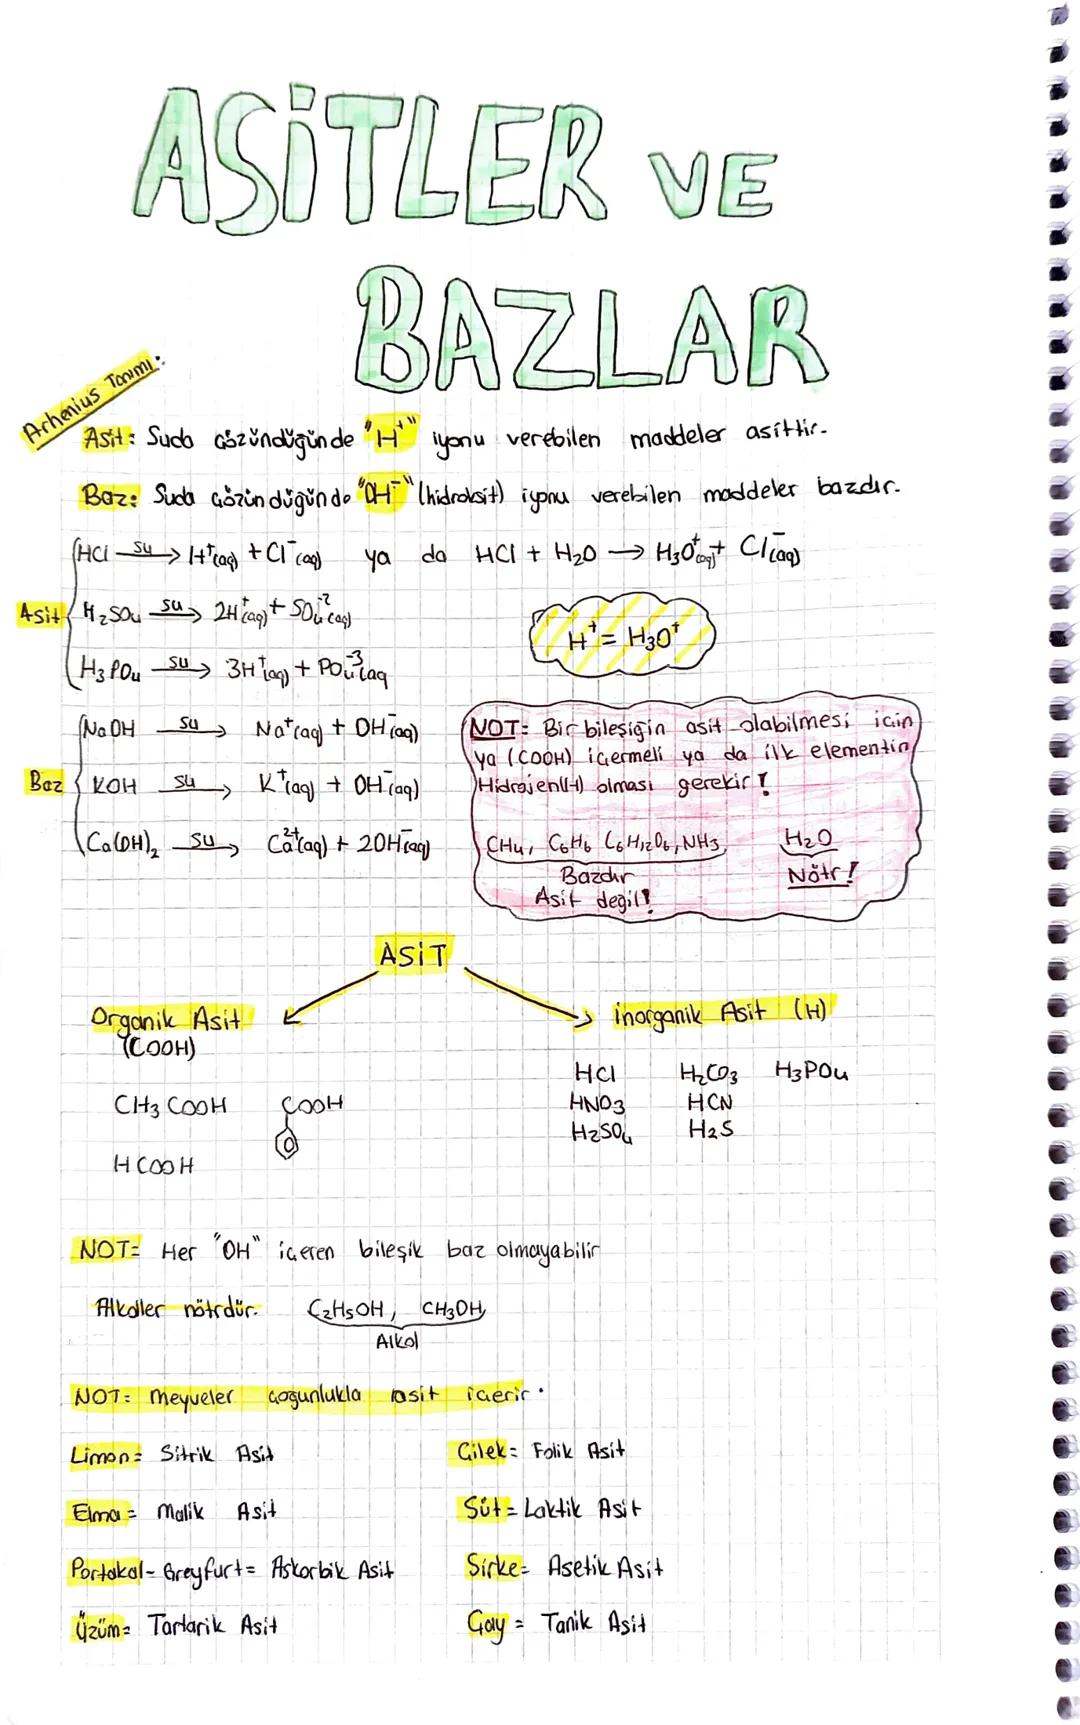 ASİTLER VE
BAZLAR
Arhenius Tanımı:
Asit: Suda çözündüğünde "H⁺" iyonu verebilen maddeler asittir.
Baz: Suda çözündüğünde "OH⁻" (hidroksit) iyonu verebilen maddeler bazdır.
HCl su→ H⁺(aq) + Cl⁻(aq) ya da HCl + H₂O → H₃O⁺(aq) + Cl⁻(aq)
Asit H₂SO₄ su→ 2H⁺(aq) + SO₄⁻²(aq)
H⁺ = H₃O⁺
H₃PO₄ su→ 3H⁺(aq) + PO₄⁻³(aq
NaOH su→ Na⁺(aq) + OH⁻(aq)
Baz KOH su→ K⁺(aq) + OH⁻(aq)
Ca(OH)₂ su→ Ca²⁺(aq) + 2OH⁻(aq)
NOT: Bir bileşiğin asit olabilmesi için
ya (COOH) içermeli ya da ilk elementin
Hidrojen(H) olması gerekir!
CH₄, C₆H₆ C₆H₁₂O₆, NH₃ H₂O
Bazdır Nötr!
Asit değil!
ASİT
Organik Asit inorganik Asit (H)
(COOH)
HCl H₂CO₃ H₃PO₄
CH₃COOH COOH HNO₃ HCN
H₂SO₄ H₂S
HCOOH
NOT= Her "OH" içeren bileşik baz olmayabilir
Alkoller nötrdür. C₂H₅OH, CH₃OH
Alkol
NOT: meyveler çoğunlukla asit içerir.
Limon= Sitrik Asit Çilek= Folik Asit
Elma= Malik Asit Süt= Laktik Asit
Portakal-Greyfurt= Askorbik Asit Sirke= Asetik Asit
Üzüm= Tartarik Asit Çay= Tanik Asit